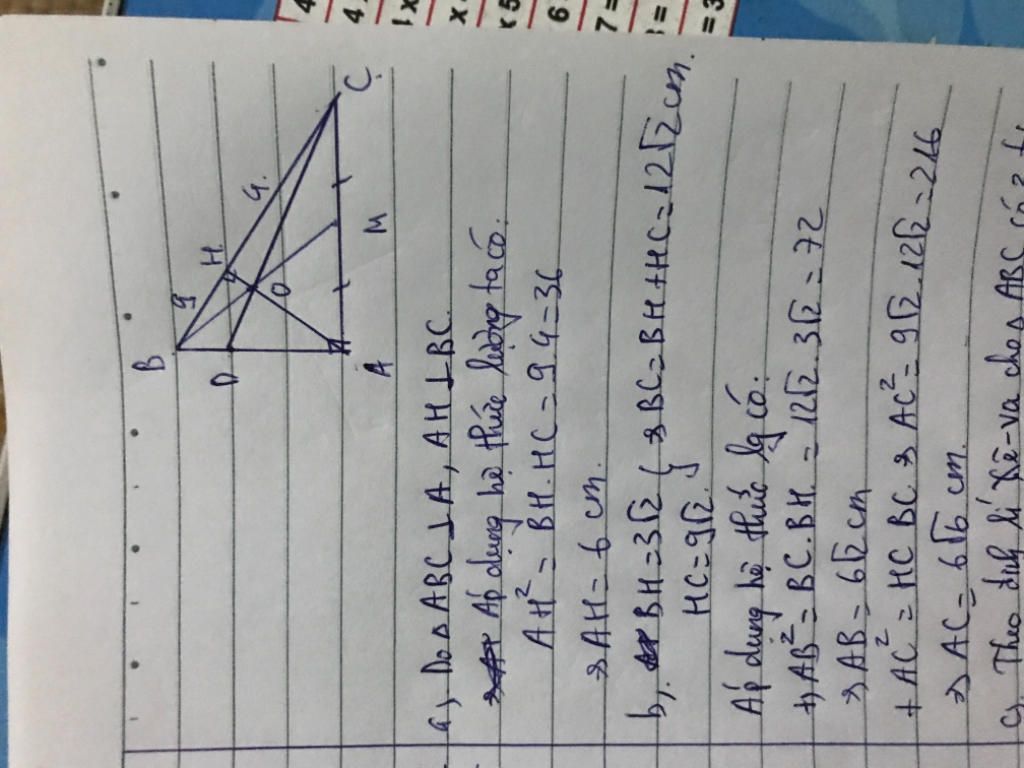 B
D
A
H
O
M
C
9
4
a, Do △ABC ⊥ A, AH ⊥ BC.
Áp dụng hệ thức lượng ta có:
AH² = BH.HC = 9.4 = 36
⇒ AH = 6 cm.
b, BH = 3√2
HC = 9√2.
} ⇒ BC = BH + HC = 12√2 cm.
Áp dụng hệ thức lg có:
+, AB² = BC.BH. = 12√2.3√2 = 72
⇒ AB = 6√2 cm
+ AC² = HC BC ⇒ AC² = 9√2.12√2 = 216
⇒ AC = 6√6 cm.
c, Theo định lí Xê-va cho △ABC có